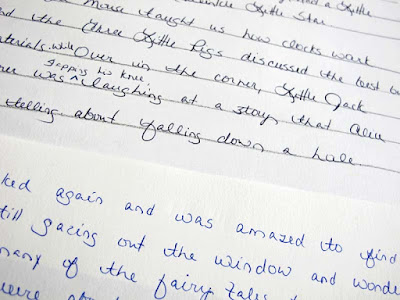 Little Star
Mouse taught us how clocks work
the three Little Pigs discussed the best
materials, while Over in the corner, Little Jack
tapping his knee
was ^ laughing at a story that Alice
telling about falling down a hole
again and was amazed to find
still gazing out the window and
many of the fairy tales
were